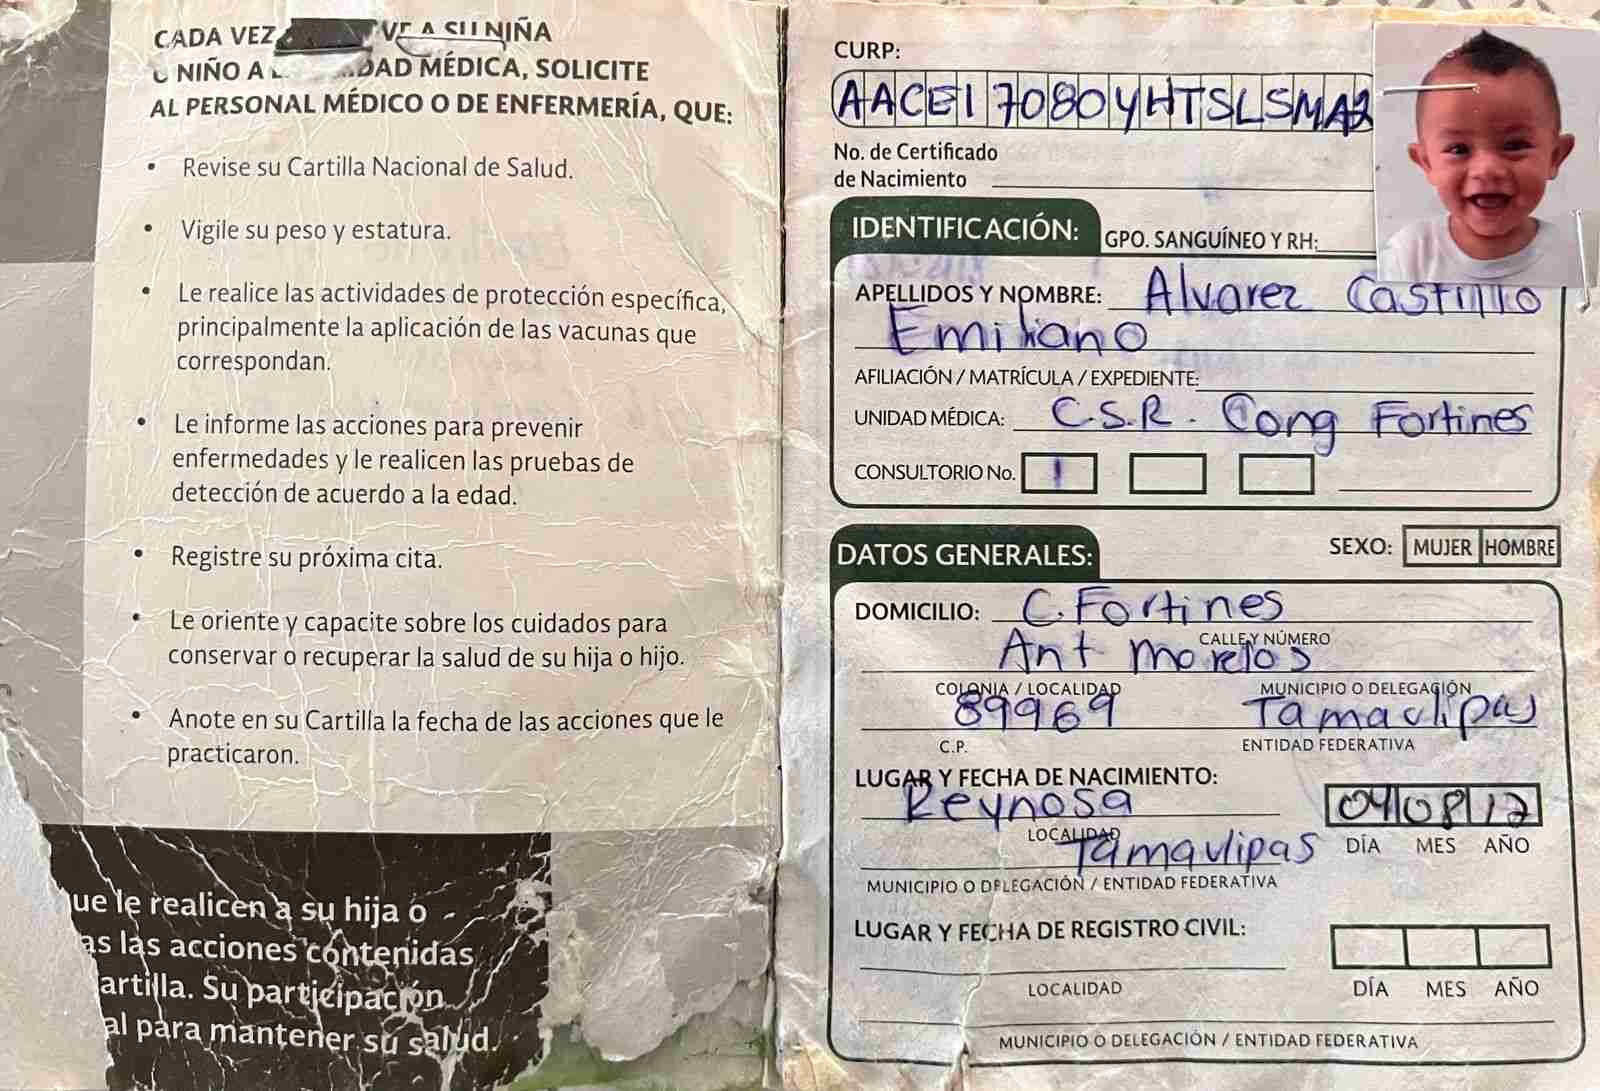 CADA VEZ A SU NIÑA
O NIÑO A MÉDICA, SOLICITE
AL PERSONAL MÉDICO O DE ENFERMERÍA, QUE:
• Revise su Cartilla Nacional de Salud.
• Vigile su peso y estatura.
• Le realice las actividades de protección específica,
principalmente la aplicación de las vacunas que
correspondan.
• Le informe las acciones para prevenir
enfermedades y le realicen las pruebas de
detección de acuerdo a la edad.
• Registre su próxima cita.
• Le oriente y capacite sobre los cuidados para
conservar o recuperar la salud de su hija o hijo.
• Anote en su Cartilla la fecha de las acciones que le
practicaron.
ue le realicen a su hija o
as las acciones contenidas
artilla. Su participación
al para mantener su salud.
CURP:
AACE170804HTSLSMA2
No. de Certificado
de Nacimiento
IDENTIFICACIÓN:
GPO. SANGUÍNEO Y RH:
APELLIDOS Y NOMBRE: Alvarez Castillo
Emiliano
AFILIACIÓN / MATRÍCULA / EXPEDIENTE:
UNIDAD MÉDICA: C.S.R. Cong Fortines
CONSULTORIO No. 1
DATOS GENERALES:
SEXO: MUJER HOMBRE
DOMICILIO: C. Fortines
CALLE Y NÚMERO
Ant Morelos
COLONIA / LOCALIDAD MUNICIPIO O DELEGACIÓN
89969 Tamaulipas
C.P. ENTIDAD FEDERATIVA
LUGAR Y FECHA DE NACIMIENTO:
Reynosa 04 08 17
LOCALIDAD DÍA MES AÑO
Tamaulipas
MUNICIPIO O DELEGACIÓN / ENTIDAD FEDERATIVA
LUGAR Y FECHA DE REGISTRO CIVIL:
LOCALIDAD DÍA MES AÑO
MUNICIPIO O DELEGACIÓN / ENTIDAD FEDERATIVA